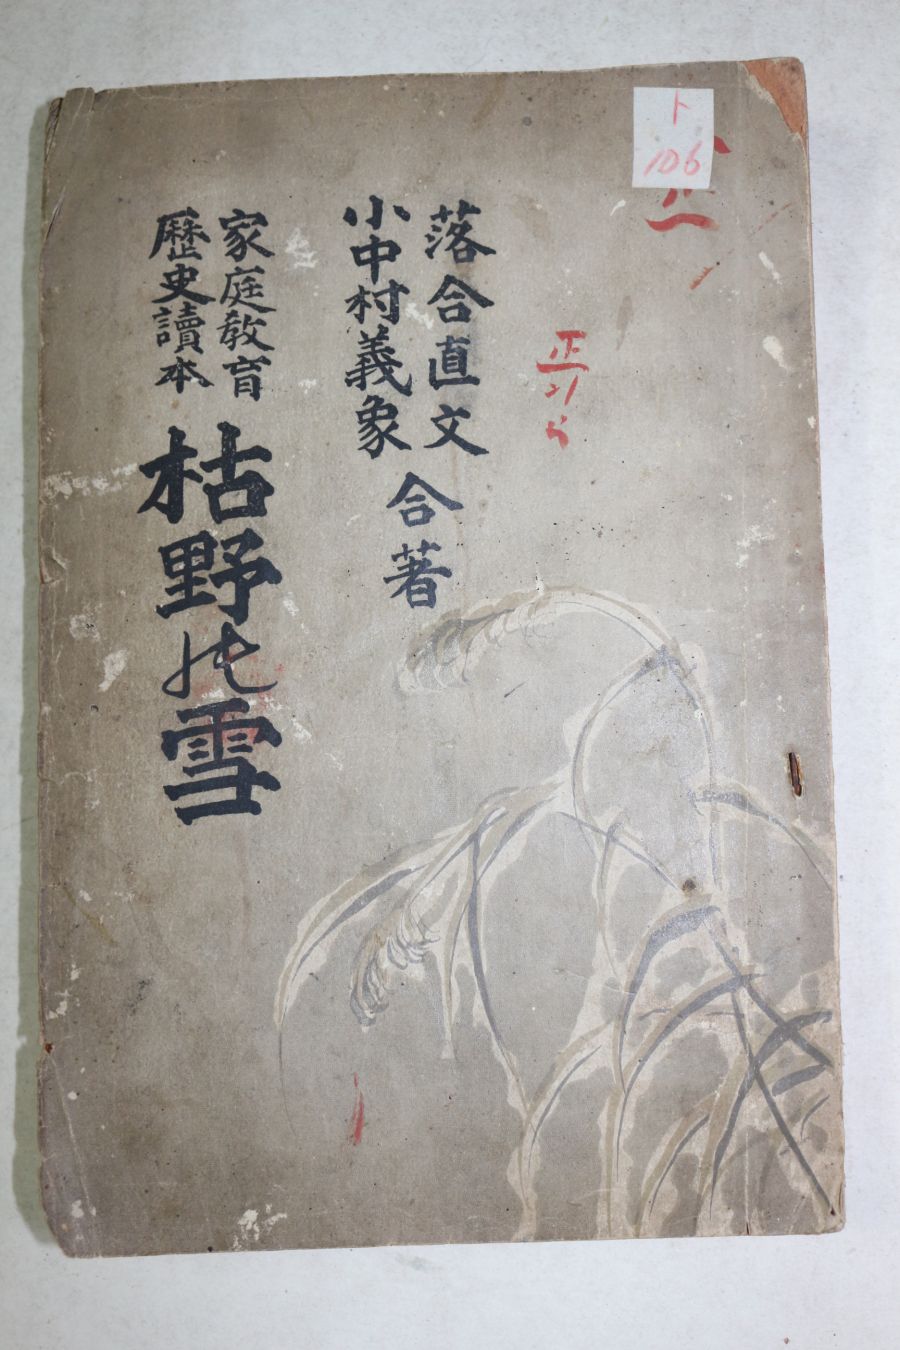 ト
106
落合直文
小中村義象
合著
家庭教育
歴史讀本
枯野の雪